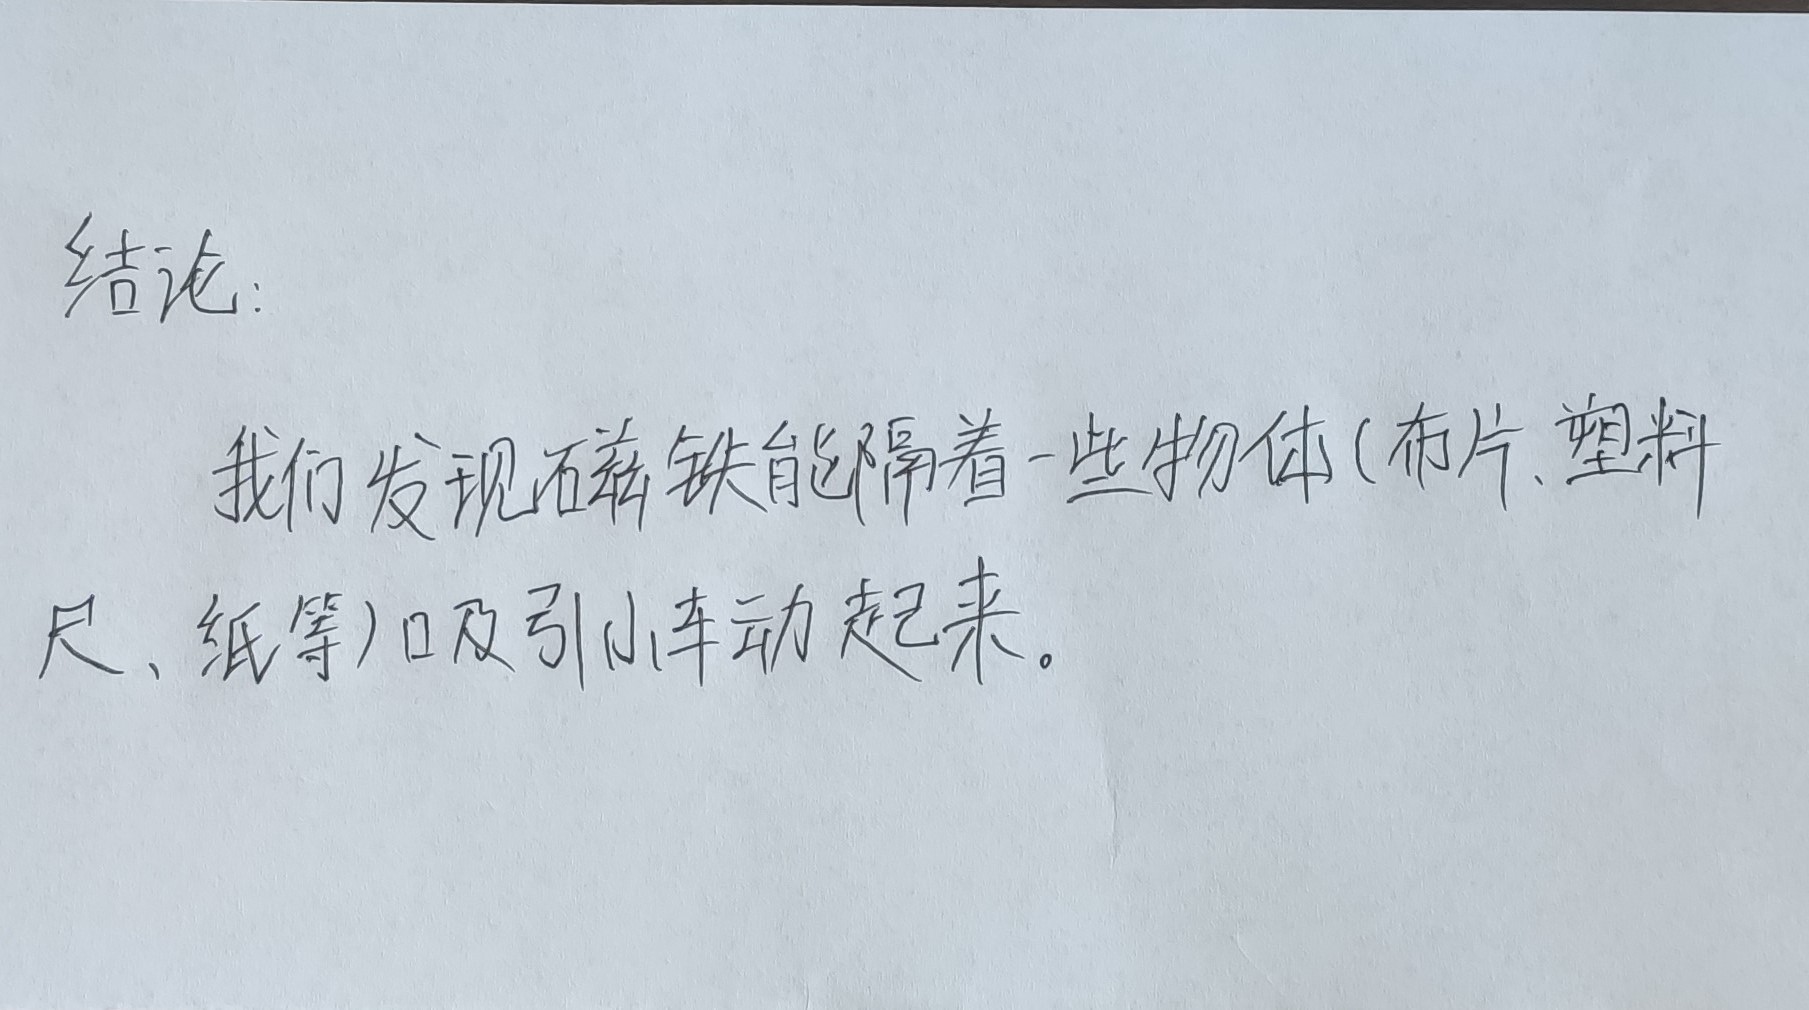 结论:
我们发现磁铁能隔着一些物体(布片、塑料
尺、纸等)吸引小车动起来。